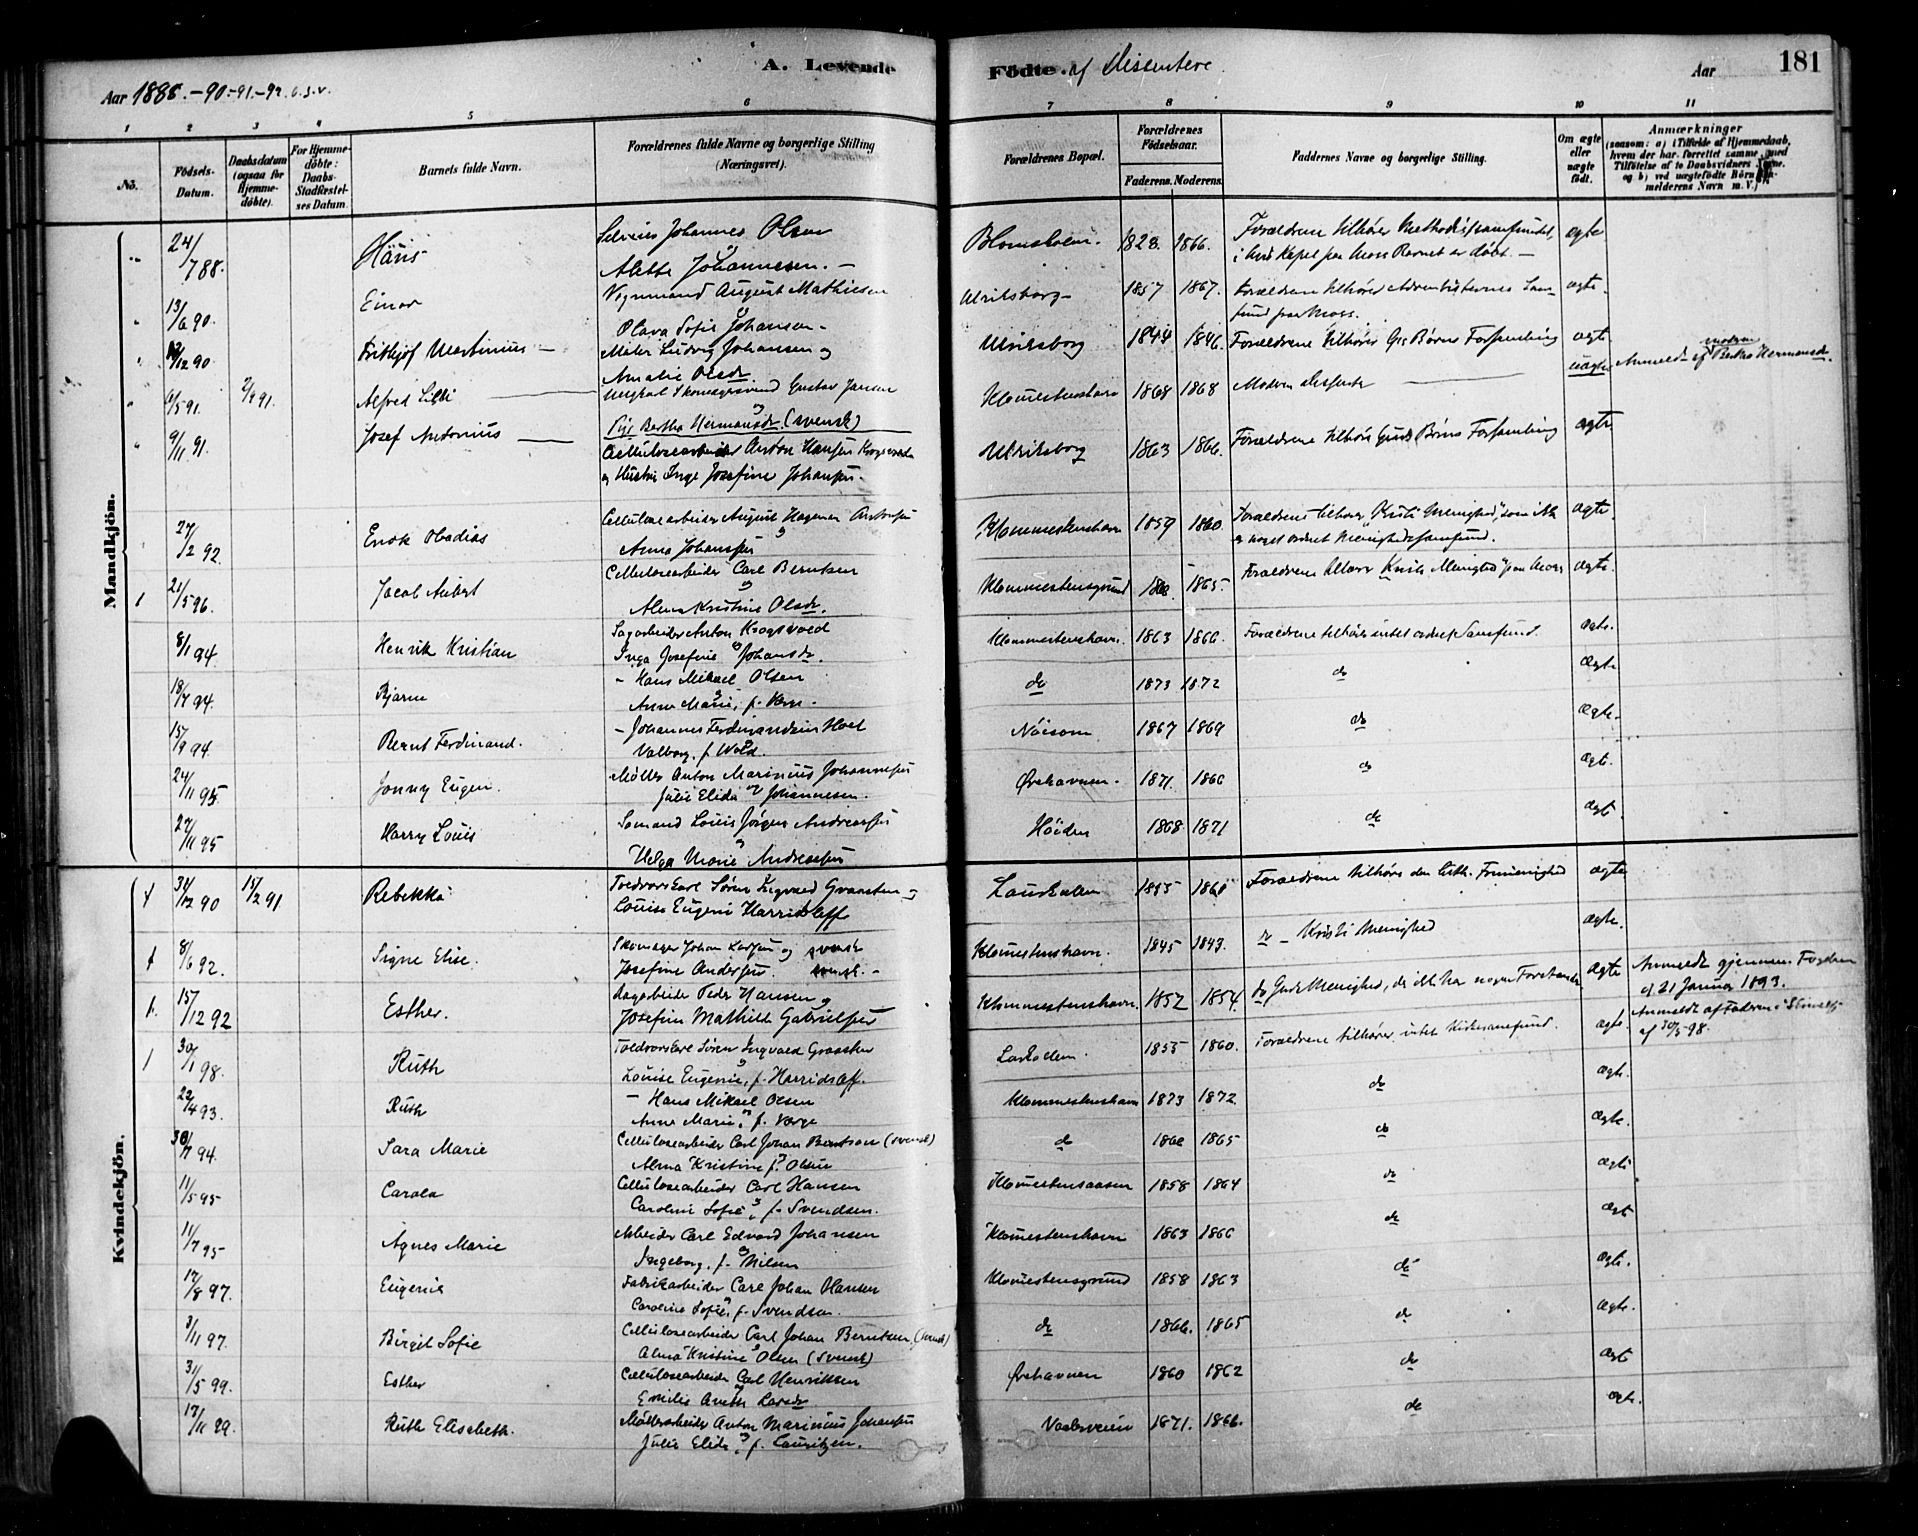 A. Levende Födte af Dissentere. 181
Aar 1888.-90.-91.-92. o.s.v. Aar
1 2 3 4 5 6 7 8 9 10 11
No. Födsels-Datum. Daabsdatum (ogsaa for Hjemmedöbte). For Hjemmedöbte: Daabs-Stadfæstelses Datum. Barnets fulde Navn. Forældrenes fulde Navne og borgerlige Stilling (Næringsvei). Forældrenes Bopæl. Forældrenes Födselsaar. Faderens. Moderens. Faddernes Navne og borgerlige Stilling. Om ægte eller uægte født. Anmærkninger (saasom: a) i Tilfælde af Hjemmedaab, hvem der har forrettet samme, med Tilföielse af to Daabsvidners Navne, og b) ved uægtefödte Börn Anmelderens Navn m. V.)
Mandkjön.
24/7 88. Hans Johannes Olsen Blomsholm. 1828. 1866. Forældrene tilhører Methodistsamfundet, ægte
Alette Johannesen. i hvis Kapel paa Moss Barnet er døbt.
13/6 90. Einar Vognmand August Mathisen Ulriksborg 1857 1867. Forældrene tilhører Adventisternes Samfund paa Moss. ægte.
Olava Sofie Johansen
12/12 90 Frithjof Martinius Maler Ludvig Johansen og Ulriksborg 1844 1846. Forældrene tilhører Gs Børns Forsamling ægte
Amalie Olsdr
6/5 91. 2/9 91 Alfred Ungkarl Skomagersvend Gustav Jansen 1868 1868 Moderen uægte Anmeldt af moderen Bertha Hermansd.
Pige Bertha Hermansdr. (svensk)
9/11 91. Josef Antonius Cellulosearbeider Anton Hansen Krogsvold Ulriksborg 1863 1866. Forældrene tilhøre Guds Børns Forsamling ægte
og Hustru Inga Josefine Johansen.
27/2 92. Enok Obadias Cellulosearbeider August Hagemar Klommestenshavn 1859 1860. Forældrene tilhører "Kristi Menighed", som ikke ægte.
Anna Johansen er noget ordnet Menighedssamfund.
1 21/5 96. Jacob Aubert Cellulosearbeider Carl Berntsen Klommestensgrund 1865. Forældrene tilhører Kristi Menighed paa Moss ægte.
Alma Kristine Olsdr.
8/1 94 Henrik Kristian Sagarbeider Anton Krogsvold Klommestenshavn. 1863 1866 Forældrene tilhører intet ordnet Samfund. ægte.
Inga Josefine Johansdr.
18/7 94. Bjarne Hans Mikael Olsen do 1873 1872 do ægte
Anne Marie, f.
15/9 94. Bernt Ferdinand. Johannes Ferdinandsen Hoel Nöisom 1867 1869 do ægte.
Valborg, f. Wold.
24/11 95 Jonny Eugen. Møller Anton Marinius Johannesen Ørehavnen. 1871. 1866 do ægte.
Julie Elida Johannesen.
27/11 95 Harry Louis Sømand Louis Jörgen Andreasen Höiden 1868 1871 do ægte
Helga Marie Andreasen
Kvindekjön.
31/12 90 15/2 91 Rebekka Toldvorsarl Søren Ingvald Graasten og 1855 1860 Forældrene tilhøre den luth. Frimenighed ægte
Louise Eugenie Harridsleff
8/6 92. Signe Elise. Skomager Johan og svensk Klommestenshavn. 1845 1843. do Kristi Menighed ægte.
Josefine Andersen. svensk.
15/12 92 Esther. Sagarbeider Peder Hansen og Klommestenshavn. 1852 1854. do Guds Menighed, der ikke har nogen Forstander ægte Anmeldt gjennem Fogden
Josefine Mathilde Gabrielsen d. 21 Januar 1893.
1 30/1 98. Ruth Søren Ingvald Graasten 1855 1860. Forældrene tilhører intet Kirkesamfund. ægte. Anmeldt af Faderen
Louise Eugenie, f. Harridsleff. af 30/5 98.
22/4 93. Ruth Hans Mikael Olsen Klommestenshavn 1873 1872. do ægte.
Anne Marie, f.
30/7 94. Sara Marie Cellulosearbeider Carl Johan Berntsen (svensk) do 1865 do ægte.
Alma Kristine f. Olsen
11/5 95 Carola Cellulosearbeider Carl Hansen Klommestensaasen 1858 1864 do ægte
Caroline Sofie, f. Svendsen.
11/7 95 Agnes Marie Arbeider Carl Edvard Johansen Klommestenshavn 1863 1866 do ægte
Ingeborg, f. Nilsen
17/8 97. Eugenie Fabrikarbeider Carl Johan Hansen Klommestensgrund 1858 1863 do ægte.
Caroline Sofie, f. Svendsen.
3/11 97. Birgit Sofie Cellulosearbeider Carl Johan Berntsen (svensk) do 1866. 1865 do ægte.
Alma Kristine Olsen (svensk)
31/5 99. Esther Cellulosearbeider Carl Henriksen Ørehavnen 1860 1862 do ægte
Emilie
17/11 99. Ruth Elisabeth. Møllearbeider Anton Marinius Johansen 1871. 1866. do ægte.
Julie Elida, f. Lauritzen.